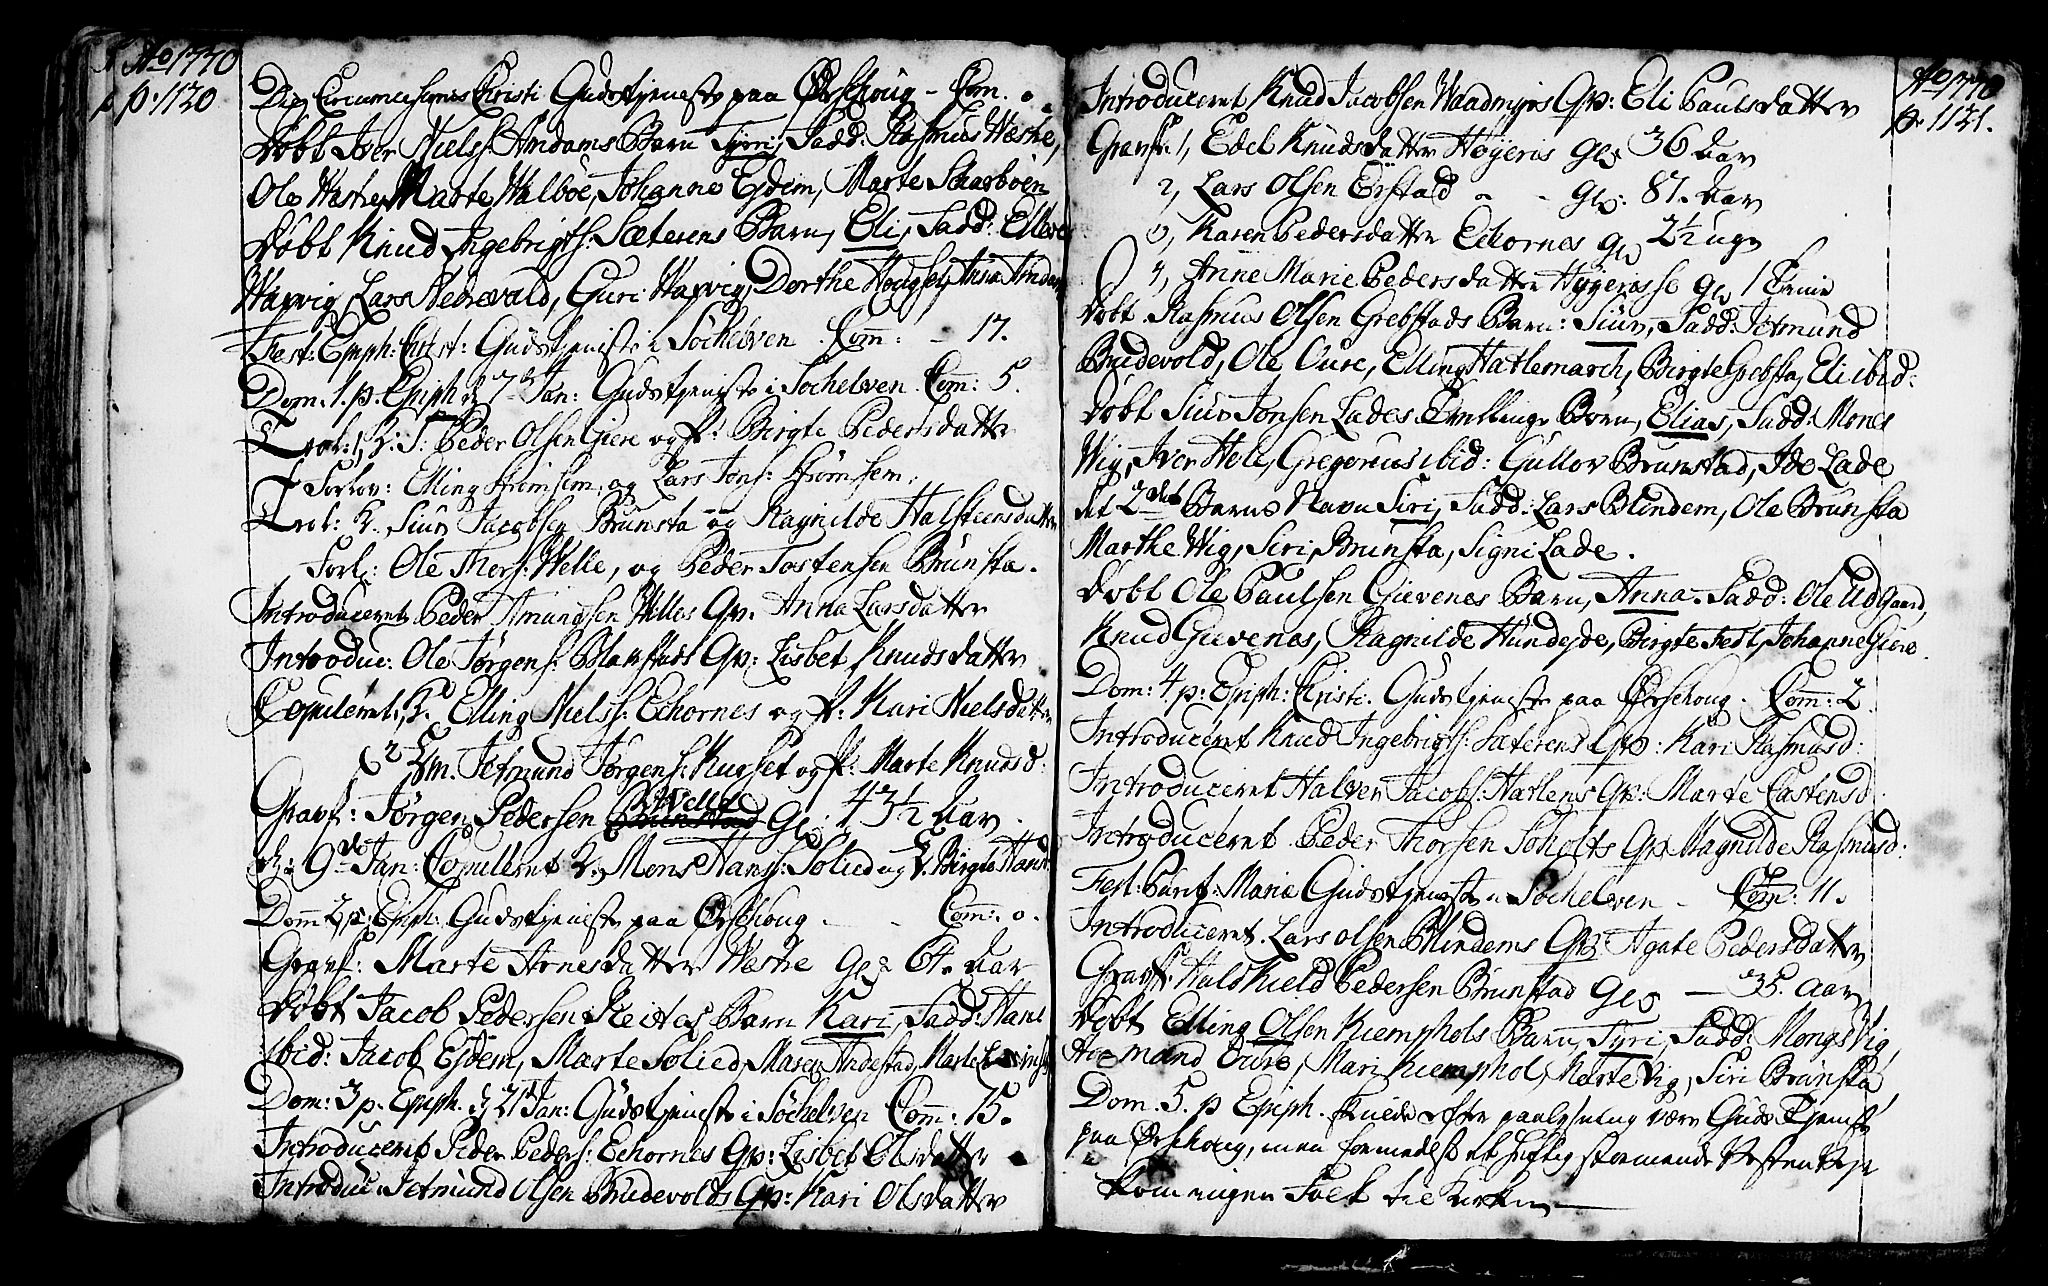 Ao 1770
p: 1120
Die Circumcisionis Christi Gudstjeneste paa Ørschoug - Com. 0.
Døbt Iver Nielss: Amdams Barn Syri, Fadd: Rasmus Westre,
Ole Westre, Marte Walbøe, Johanne Esdem, Marte Scharbøen
Døbt Knud Ingebrigts: Sæterens Barn, Eli, Fadd: Ellev
Warvig, Lars Nedrevald, Guri Warvig, Dorthe Hougset, Anna Amdam
Fest: Epiph: Christ: Gudstjeneste i Søchelven. Com: - 17.
Dom: 1. p: Epiph d 7de Jan: Gudstjeneste i Søchelven. Com: 5.
Trol: 1, K: S: Peder Olsen Giere og P: Birgte Pedersdatter
Forlov: Elling Strømsem, og Lars Jons: Strømsem.
Trol: K. Siur Jacobsen Brunsta og Ragnilde Halsteensdatter
Forl: Ole Thors: Welle, og Peder Tostensen Brunsta.
Introduceret Peder Amundsen Welles Qv. Anna Larsdatter
Introduc: Ole Jørgens: Blakstads Qv: Lisbet Knudsdatter
Copuleret: 1, K. Elling Nielss: Echornes og P: Kari Nielsdatter
2 Em. Jetmund Jørgens: Kurset og P: Marte Knudsd:
Gravf: Jørgen Pedersen Welle Gl: 43½ Aar.
d: 9de Jan: Copulleret K. Mons Hanss: Solied og P. Birgte Hansd:
Dom 2 p: Epiph: Gudstjeneste paa Ørschoug - - Com: 0.
Gravf: Marte Arnesdatter Westre Gl: 64. Aar
Døbt Jacob Pedersen Reites Barn Kari, Fadd: Hans
ibid: Jacob Esdem, Marte Solied, Maren Andestad, Marte
Dom: 3 p. Epiph. d 21 Jan: Gudstjeneste i Søchelven Com: 15.
Introduceret Peder Peders: Echornes Qv: Lisbet Olsdatter
Introduc: Jetmund Olsen Brudevolds Qv: Kari Olsdatter
Ao 1770
p. 1121.
Introduceret Knud Jacobsen Waadmyrs Qv: Eli Paulsdatter
Gravf: 1, Edel Knudsdatter Høyeras Gl: 36 Aar
2, Lars Olsen Erstad - - Gl: 87. Aar
3, Karen Pedersdatter Echornes Gl 2½ uge
4, Anne Marie Pedersdatter Høyerasse Gl 1 Time
Døbt Rasmus Olsen Grebstads Barn: Siur, Fadd: Jetmund
Brudevold, Ole Oure, Elling Hatlemarch, Birgte Grebsta, Eli ibid:
Døbt Siur Jonsen Lades Tvillinge Børn, Elias, Fadd: Mones
Wig, Iver Hole, Gregorius ibid: Gullov Brunstad, Ide Lade
det 2det Barns Navn Siri, Fadd: Lars Blindem, Ole Brunsta
Marthe Wig, Siri Brunsta, Signi Lade.
Døbt Ole Paulsen Giævenes Barn, Anna. Fadd: Ole Udgaard,
Knud Giævenes, Ragnilde Hundejde, Birgte Fest, Johanne Giere.
Dom: 4 p: Epiph: Christi. Gudstjeneste paa Ørschoug. Com: 2.
Introduceret Knud Ingebrigts: Sæterens Qv: Kari Rasmusd:
Introduceret Halver Jacobs: Hatlens Qv: Marte Castensd:
Introduceret Peder Thorsen Soholts Qv Magnilde Rasmusd:
Fest: Purif: Mariæ Gudstjeneste i Søchelven - Com: 11.
Introduceret Lars Olsen Blindems Qv: Agate Pedersdatter
Gravf: Halskield Pedersen Brunstad Gl: - 35. Aar
Døbt Elling Olsen Kiemphols Barn, Syri, Fadd: Mongs Vig,
Hermand Oure, Mari Kiemphol, Marte Vig, Siri Brunsta
Dom. 5. p Epiph. skulde efter paalysning være Guds Tjeneste
paa Ørschoug, men formedelst et heftig stormende Vesten Vejr
kom ingen Folk til Kirken